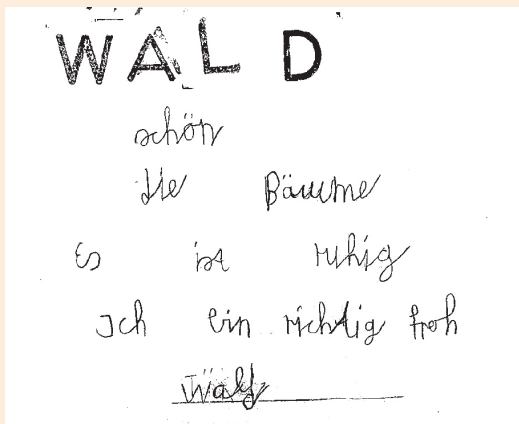 WALD
schön
die Bäume
Es ist ruhig
Ich bin richtig froh
Wald